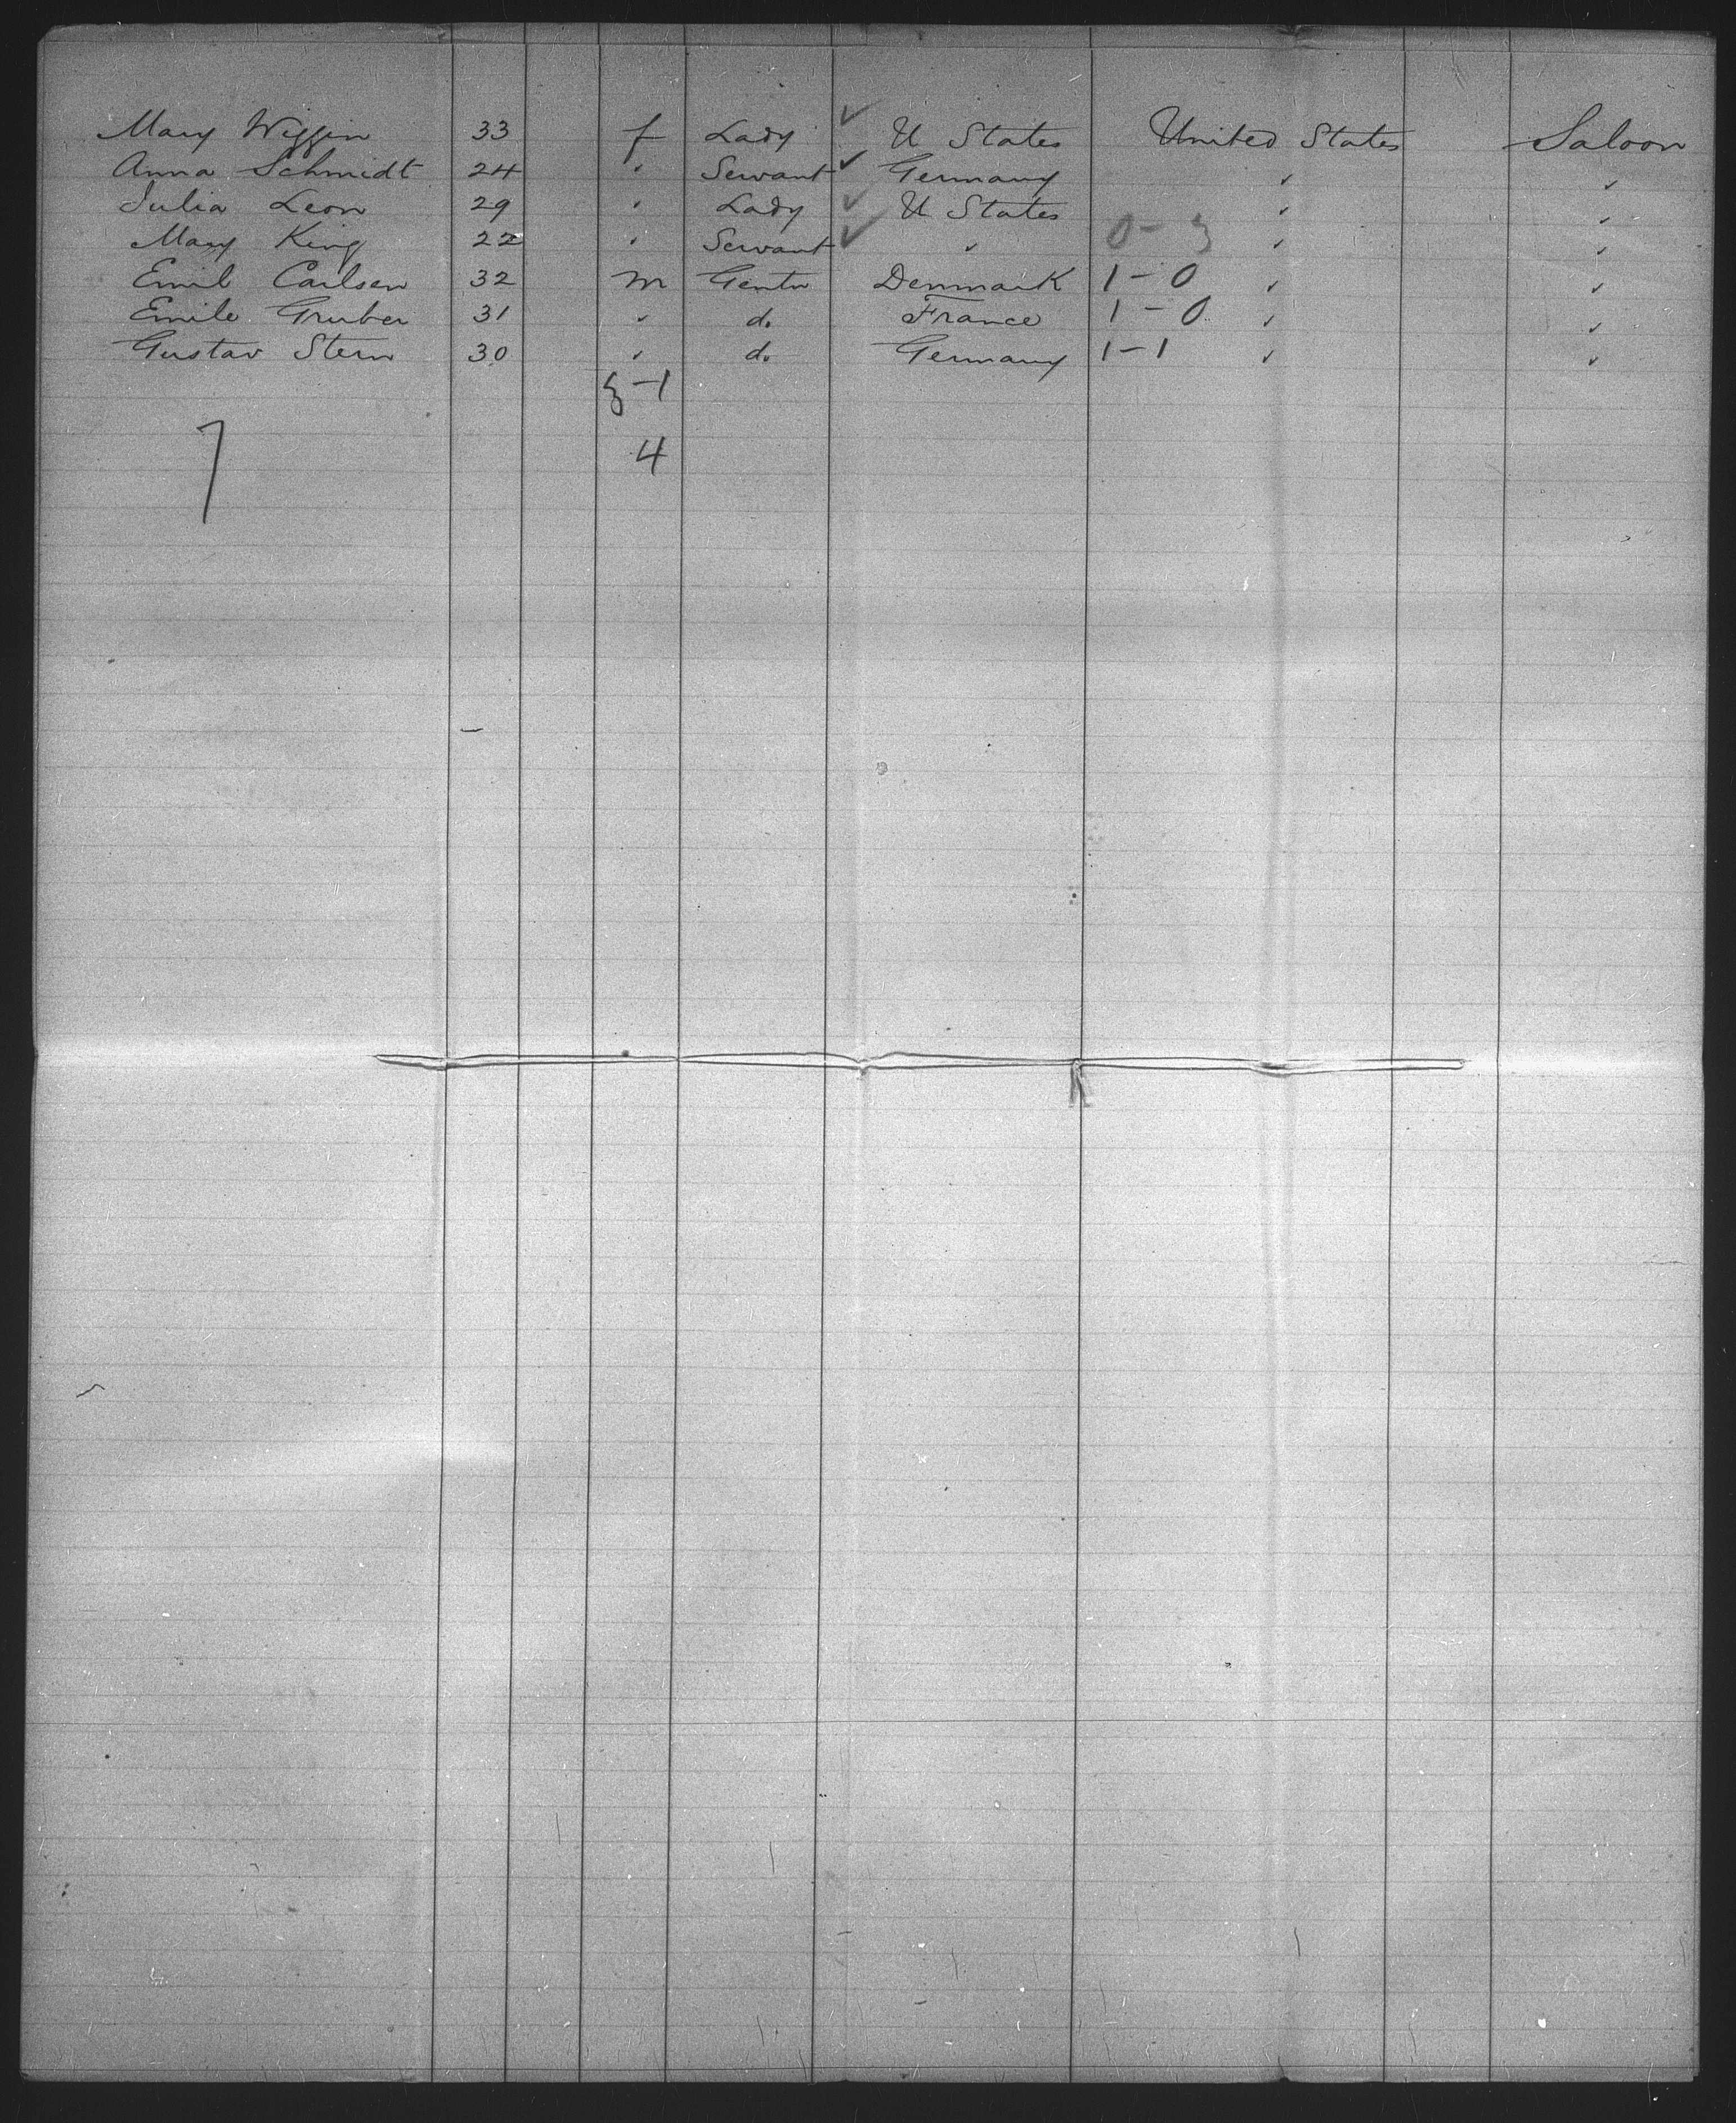 Mary Wiggin 33 f Lady ✓ U States United States Saloon
Anna Schmidt 24 " Servant ✓ Germany " "
Julia Leon 29 " Lady ✓ U States " "
Mary King 22 " Servant ✓ " 0-3 " "
Emil Carlsen 32 m Gentn Denmark 1-0 " "
Emile Gruber 31 " do France 1-0 " "
Gustav Stern 30 " do Germany 1-1 " "
3-1
7 4